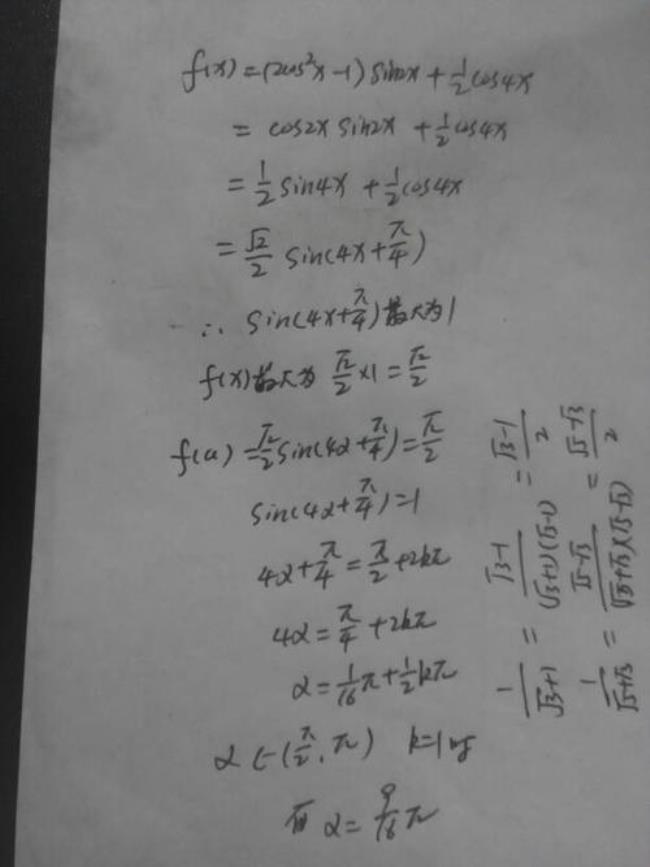 f(x)=(2cos²x-1)sin2x+½cos4x
=cos2x sin2x+½cos4x
=½sin4x+½cos4x
=√2/2 sin(4x+π/4)
∴ sin(4x+π/4)最大为1
f(x)最大为 √2/2×1=√2/2
f(α)=√2/2 sin(4α+π/4)=√2/2
sin(4α+π/4)=1
4α+π/4=π/2+2kπ
4α=π/4+2kπ
α=1/16π+½kπ
α∈(π/2,π) k=1时
有α=9/16π
1/(√3+1)=(√3-1)/((√3+1)(√3-1))=(√3-1)/2
1/(√5+√3)=(√5-√3)/((√5+√3)(√5-√3))=(√5+√3)/2